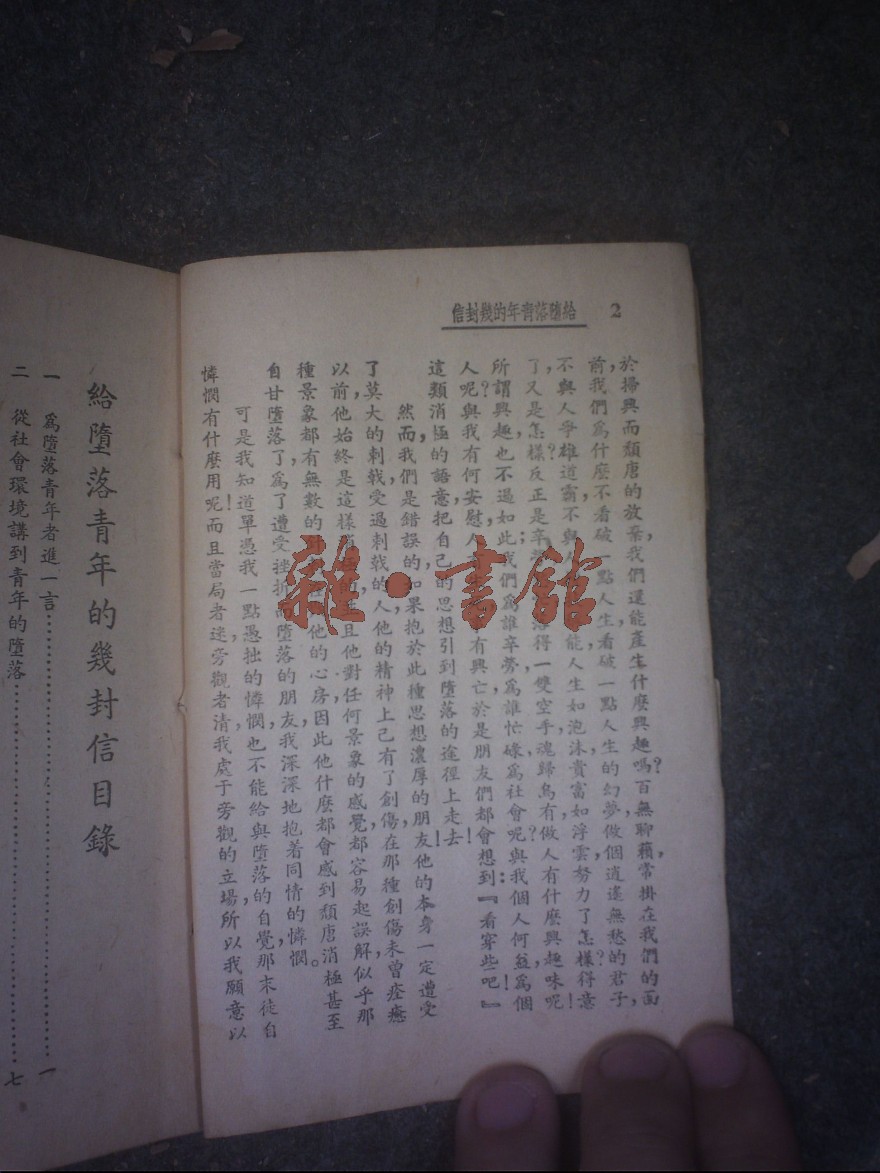 給墮落青年的幾封信 2
於揚興而頹唐的放棄,我們還能產生什麼興趣嗎?百無聊賴,常掛在我們的面
前,我們爲什麼不看破一點人生,看破一點人生的幻夢,做個逍遙無愁的君子,
不與人爭雄道霸,不與人 能,人生如泡沫,貴富如浮雲,努力了怎樣?得意
了又是怎樣?反正是 得一雙空手魂歸,烏有做人有什麼興趣味呢!
所謂興趣也不過如此,我們爲誰卒勞,爲誰忙碌,爲社會呢?與我個人何益?爲個
人呢?與我有何安慰, 有興亡,於是朋友們都會想到:『看穿些吧!』
這類消極的語意,把自己的思想引到墮落的途徑上走去!
然而,我們是錯誤的,如果抱於此種思想濃厚的朋友,他的本身一定遭受
了莫大的刺戟,受過刺戟的人,他的精神上已有了創傷,在那種創傷未曾痊癒
以前,他始終是這樣 且他對任何景象的感覺都容易起誤解,似乎那
種景象都有無數的 他的心房,因此他什麼都會感到頹唐消極,甚至
自甘墮落了,爲了遭受挫折而墮落的朋友,我深深地抱着同情的憐憫。
可是我知道單憑我一點愚拙的憐憫,也不能給與墮落的自覺,那末徒自
憐憫有什麼用呢!而且當局者迷,旁觀者清,我處于旁觀的立場,所以我願意以
給墮落青年的幾封信目錄
一 爲墮落青年者進一言……………………一
二 從社會環境講到青年的墮落……………………七
雜·書館